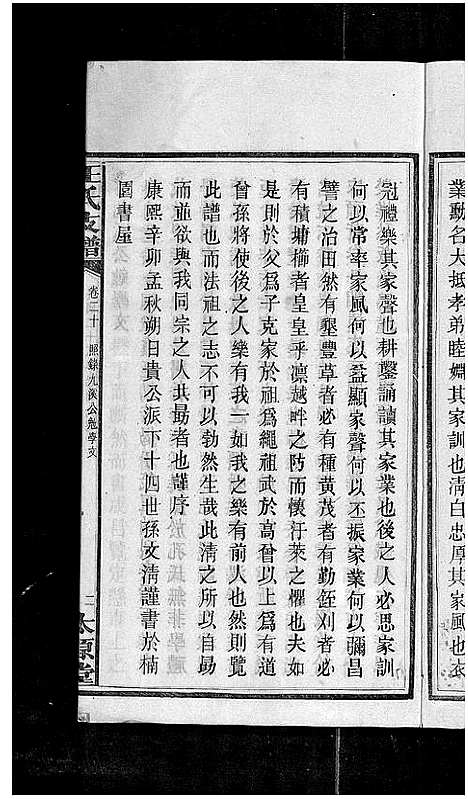 業勳名大抵孝弟睦婣其家訓也淸白忠厚其家風也衣
冠禮樂其家聲也耕鑿誦讀其家業也後之人必思家訓
何以常率家風何以益顯家聲何以丕振家業何以彌昌
譬之治田然有墾豐草者必有種黃茂者有勤銍刈者必
有積墉櫛者皇皇乎凜越畔之防而懷汙萊之懼也夫如
是則於父爲子克家於祖爲繩祖武於高曾以上爲有道
曾孫將使後之人樂有我一如我之樂有前人也然則覽
此譜也而法祖之志不可以勃然生哉此淸之所以自勗
而並欲與我同宗之人共勗者也謹序
康熙辛卯孟秋朔日貴公派下十四世孫文淸謹書於楠
園書屋
王氏支譜
卷二十
照錄九溪公勉學文
二
太原堂